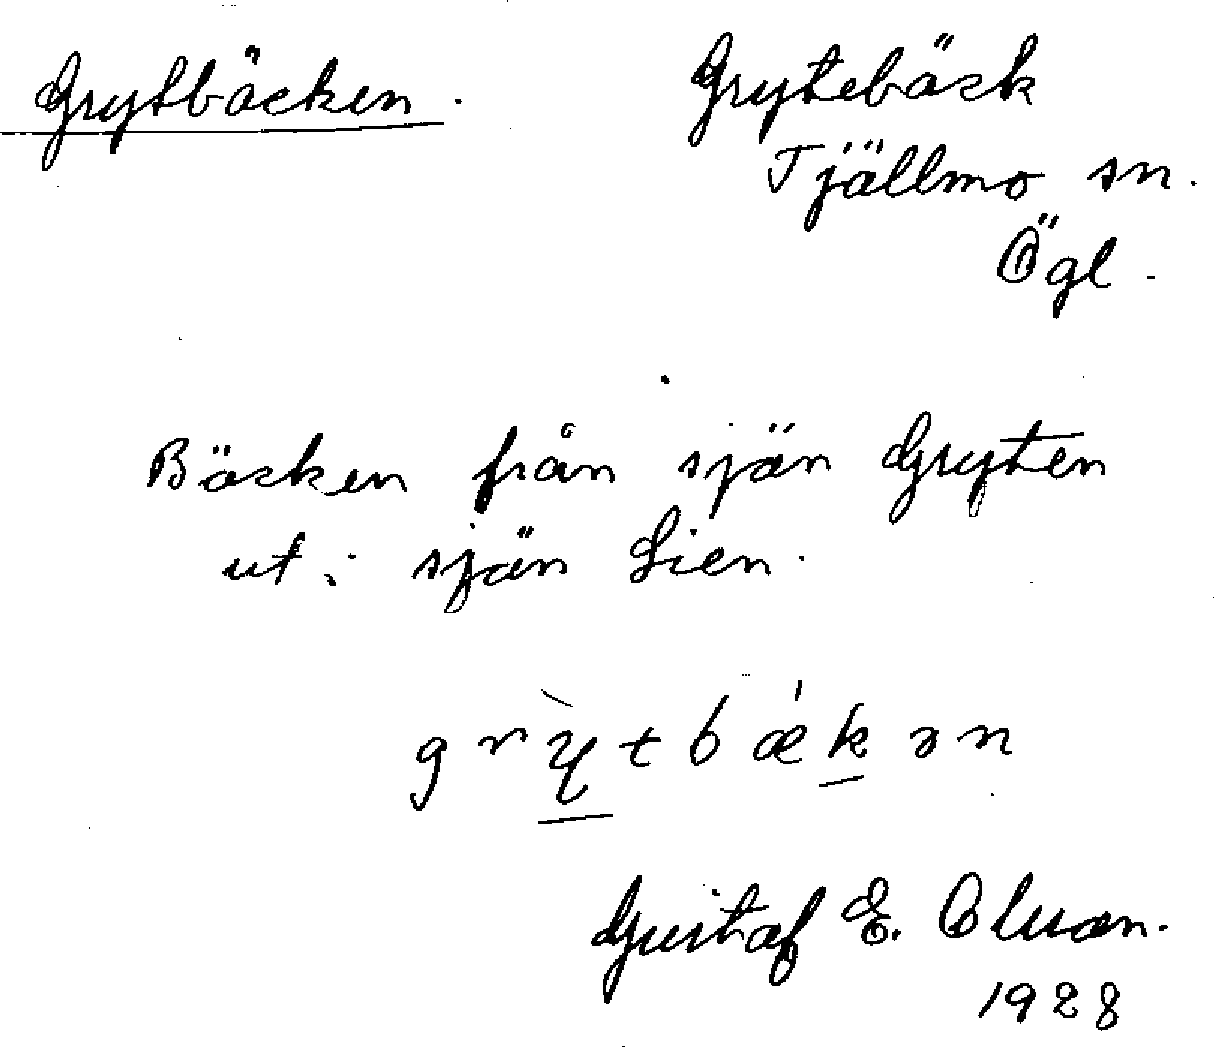 Grytbäcken. Grytebäck
Tjällmo sn.
Ögl.
Bäcken från sjön Gryten
ut i sjön Lien.
grỳtbǽkən
Gustaf E. Olsson.
1928